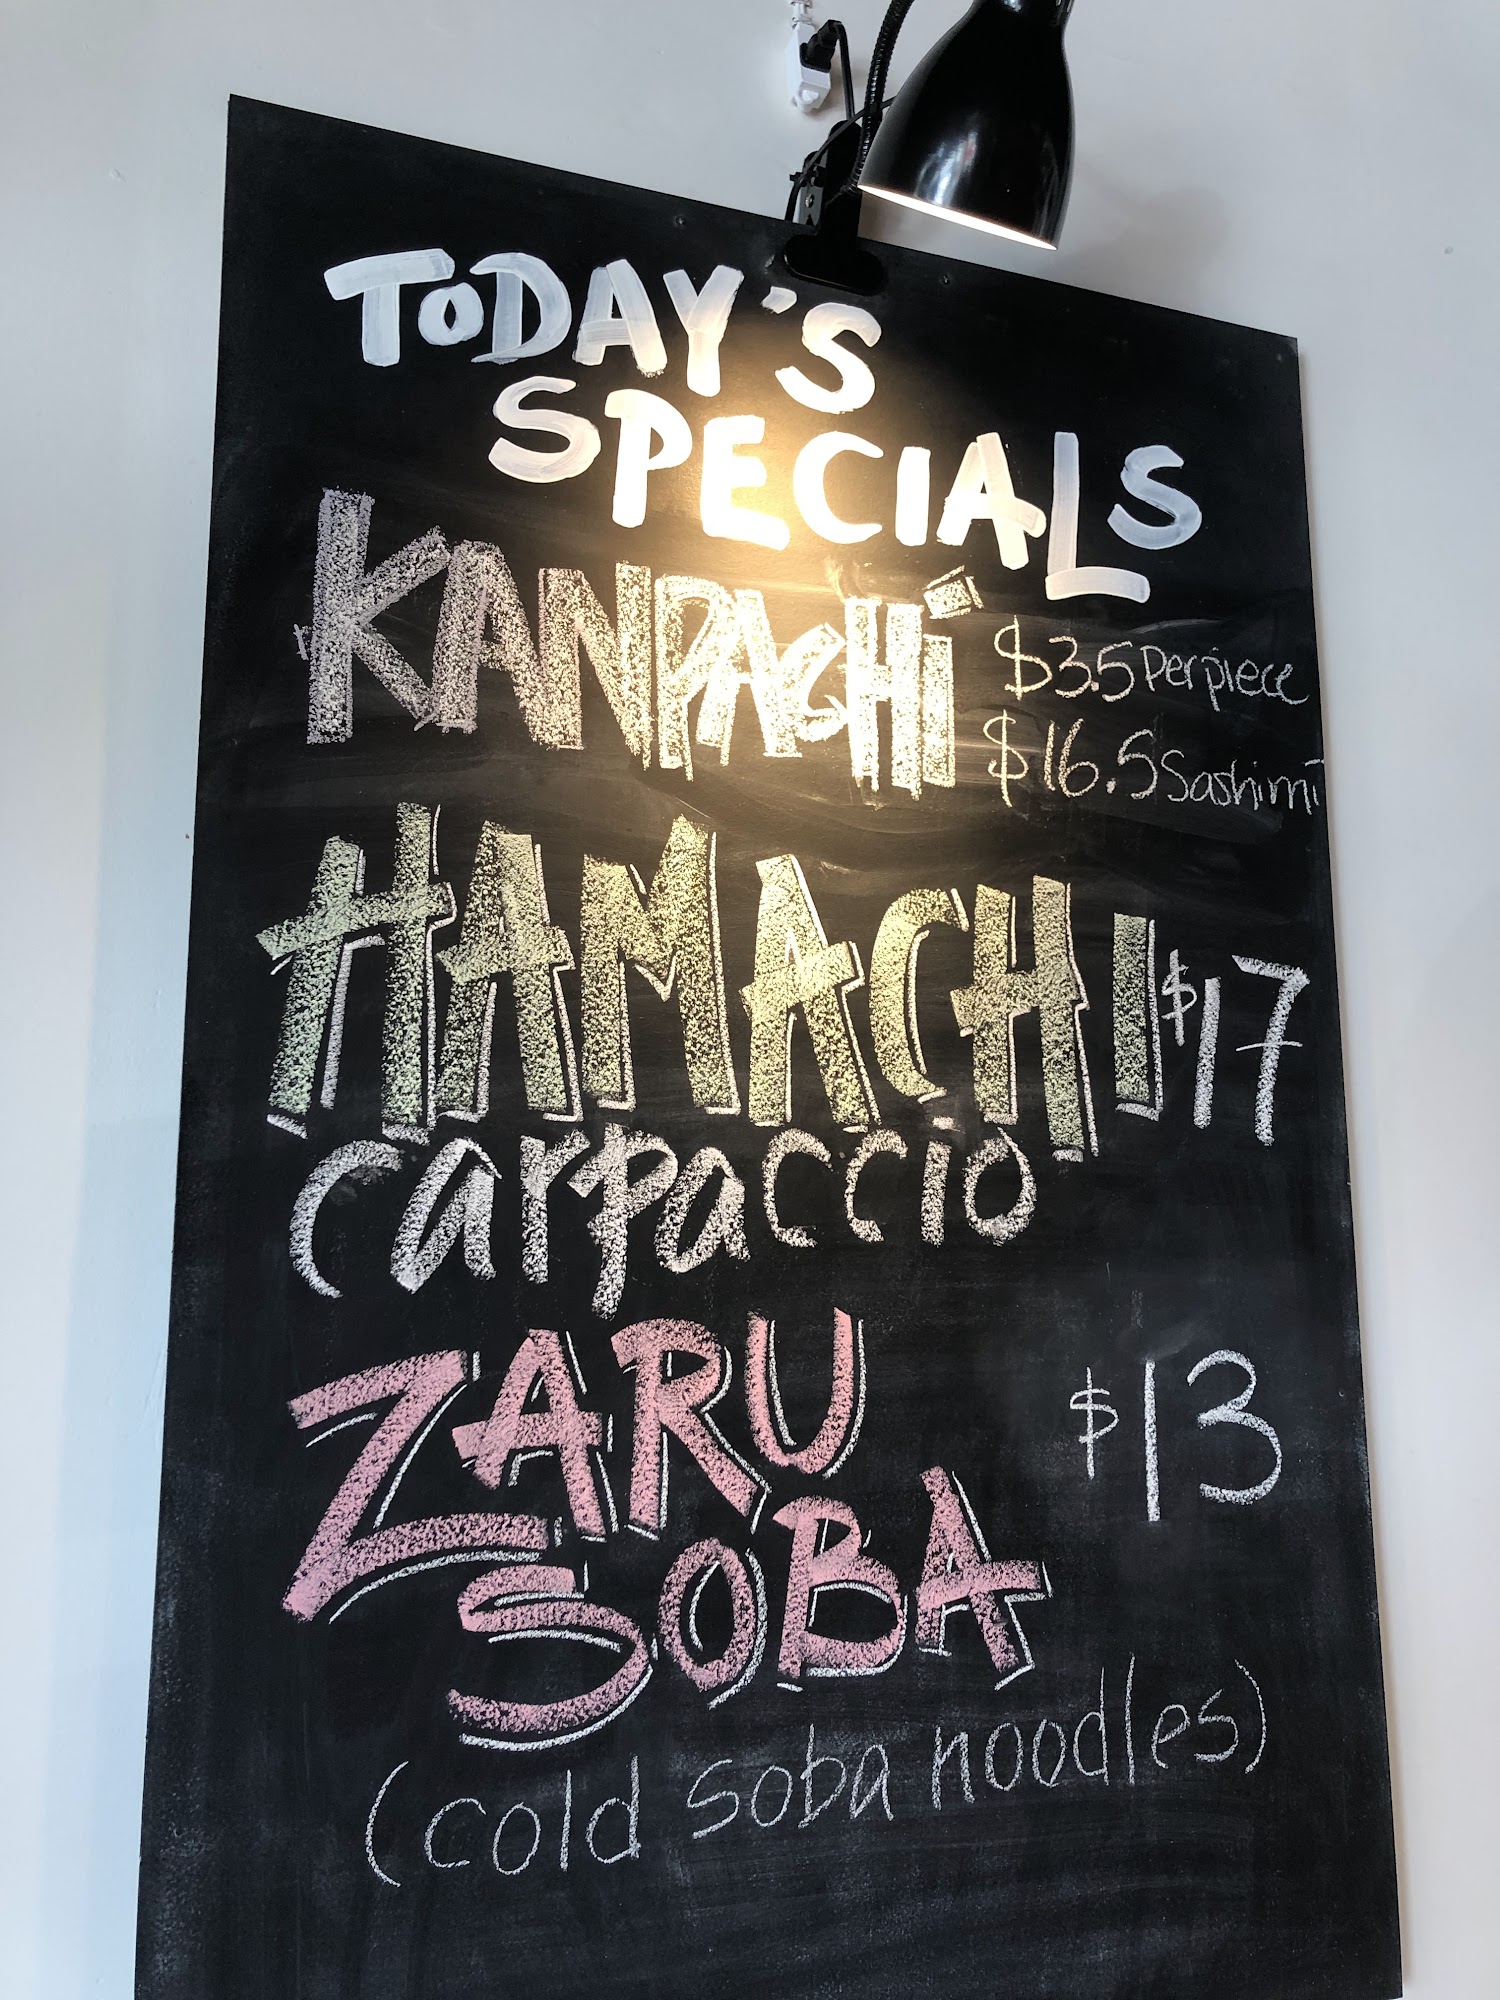 TODAY'S
SPECIALS
KANPACHi $3.5 Per piece
$16.5 Sashimi
HAMACHI $17
carpaccio
ZARU $13
SOBA
(cold soba noodles)